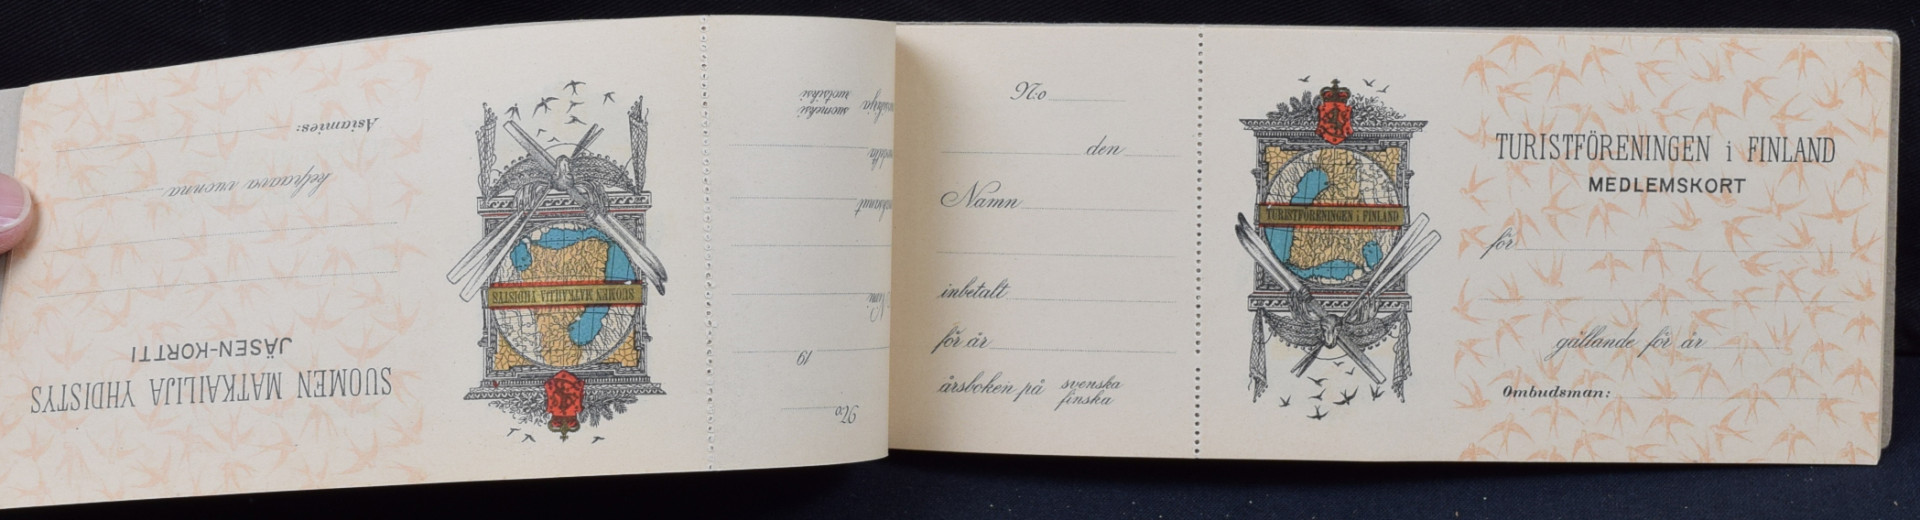 SUOMEN MATKAILIJA YHDISTYS
JÄSEN-KORTTI
kelpaava vuonna
Asiamies:
SUOMEN MATKAILIJA YHDISTYS
No
19
Nimi
suomeksi
ruotsiksi
No
den
Namn
inbetalt
för år
årsboken på svenska
finska
TURISTFÖRENINGEN i FINLAND
TURISTFÖRENINGEN i FINLAND
MEDLEMSKORT
för
gällande för år
Ombudsman: